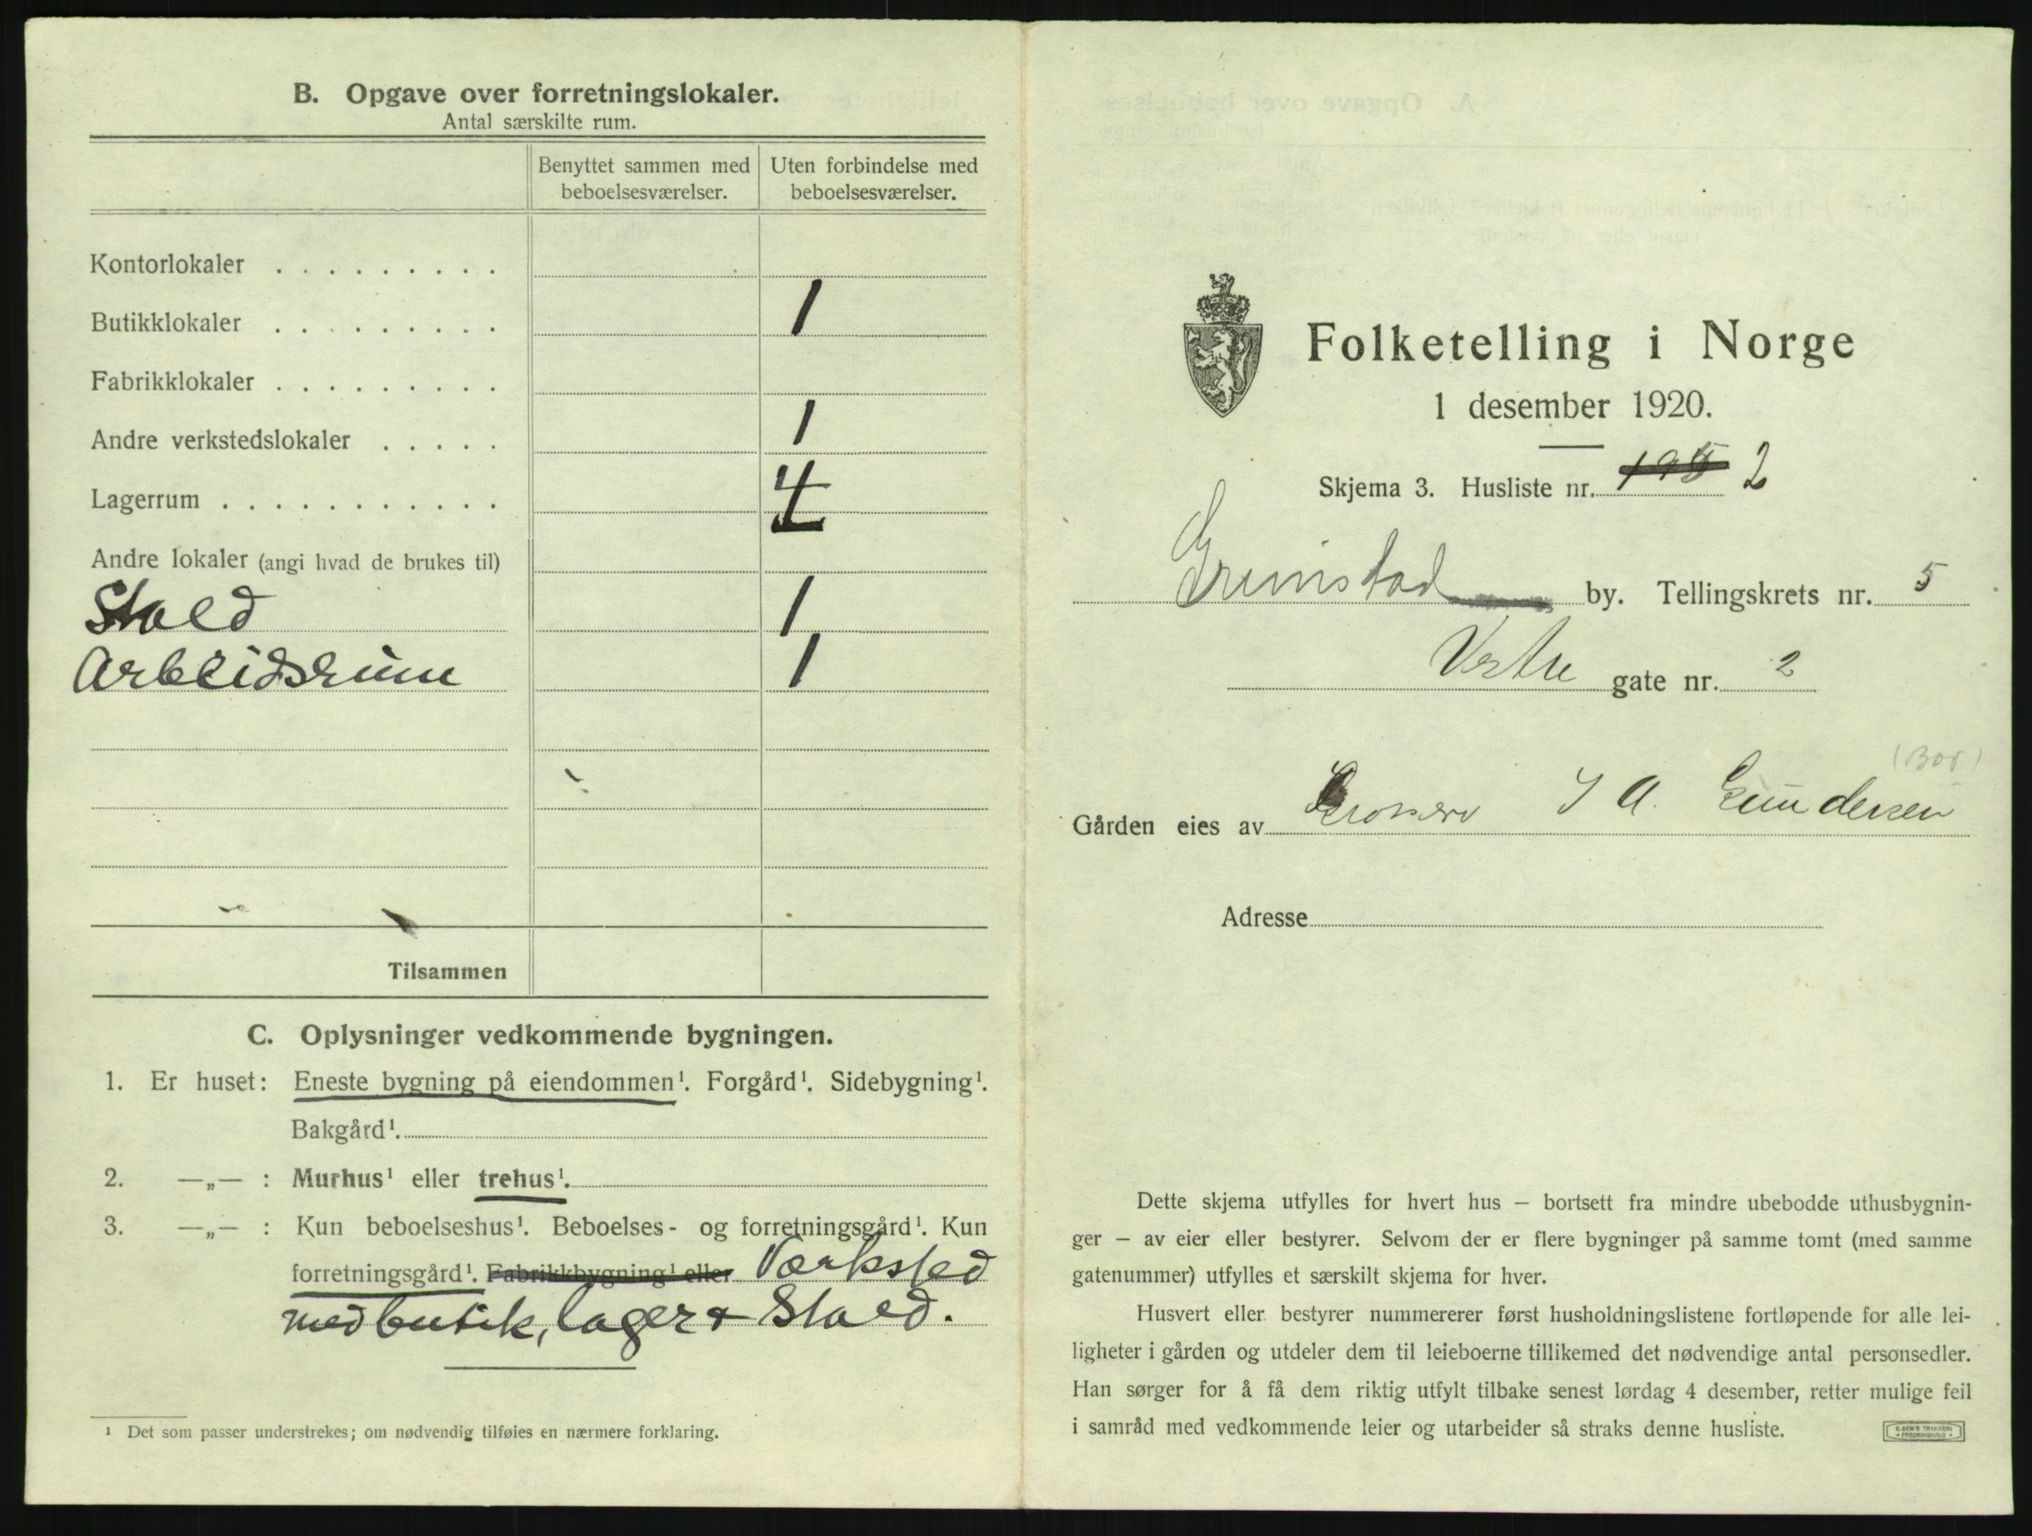 B. Opgave over forretningslokaler.
Antal særskilte rum.
Benyttet sammen med beboelsesværelser.
Uten forbindelse med beboelsesværelser.
Kontorlokaler . . . . . . . . .
Butikklokaler . . . . . . . . . 1
Fabrikklokaler . . . . . . . . .
Andre verkstedslokaler . . . . . 1
Lagerrum . . . . . . . . . . . . 4
Andre lokaler (angi hvad de brukes til)
Stald 1
Arbeidsrum 1
Tilsammen
C. Oplysninger vedkommende bygningen.
1. Er huset: Eneste bygning på eiendommen¹. Forgård¹. Sidebygning¹.
Bakgård¹.
2. —„— : Murhus¹ eller trehus¹.
3. —„— : Kun beboelseshus¹. Beboelses- og forretningsgård¹. Kun
forretningsgård¹. Fabrikkbygning¹ eller Værksted
med butik, lager + Stald.
¹ Det som passer understrekes; om nødvendig tilføies en nærmere forklaring.
Folketelling i Norge
1 desember 1920.
Skjema 3. Husliste nr. 2
Grimstad by. Tellingskrets nr. 5
Vestre gate nr. 2
(Bor)
Gården eies av Grosserer J A. Gundersen
Adresse
Dette skjema utfylles for hvert hus – bortsett fra mindre ubebodde uthusbygnin-
ger – av eier eller bestyrer. Selvom der er flere bygninger på samme tomt (med samme
gatenummer) utfylles et særskilt skjema for hver.
Husvert eller bestyrer nummererer først husholdningslistene fortløpende for alle lei-
ligheter i gården og utdeler dem til leieboerne tillikemed det nødvendige antal personsedler.
Han sørger for å få dem riktig utfylt tilbake senest lørdag 4 desember, retter mulige feil
i samråd med vedkommende leier og utarbeider så straks denne husliste.